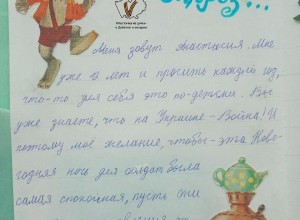 Мороз...
Меня зовут Анастасия. Мне
уже 12 лет и просить каждый год,
что-то для себя это по-детски. Вы
уже знаете, что на Украине - Война! И
поэтому моё желание, чтобы эта Ново-
годняя ночь для солдат была
самая спокойная, пусть они